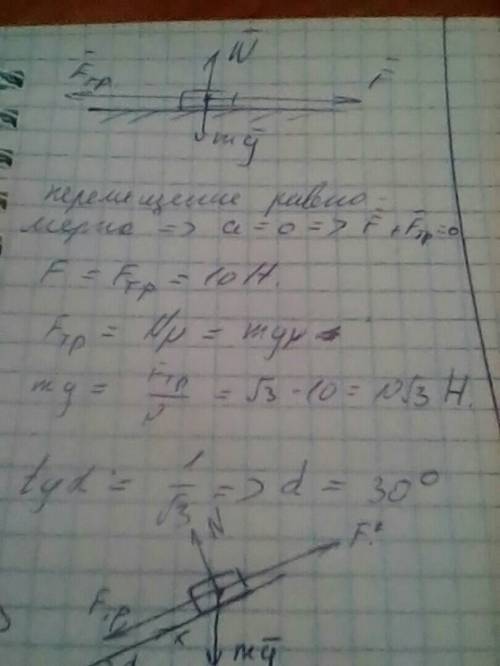 N̄
F̄тр F̄
mḡ
перемещение равно-
мерно => a = 0 => F̄ + F̄тр = 0
F = Fтр = 10 Н.
Fтр = Nμ = mgμ
mg = Fтр/μ = √3 · 10 = 10√3 Н.
tg α = 1/√3 => α = 30°
N F̄
Fтр x
mḡ